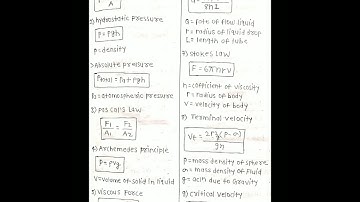 A
2) hydrostatic Pressure
P = ρgh
ρ = density
Absolute pressure
Ptotal = P0 + ρgh
P0 = atmospheric pressure
Pascal's Law
F1/A1 = F2/A2
4) Archemedes principle
V = volume of solid in liquid
5) Viscous Force
8ηl
Q = rate of flow liquid
r = radius of liquid drop
L = length of tube
7) Stokes Law
F = 6πηrv
η = cofficient of viscosity
r = radius of body
V = velocity of body
8) Terminal velocity
ρ = mass density of sphere
σ = mass density of fluid
g = accn due to Gravity
9) critical velocity